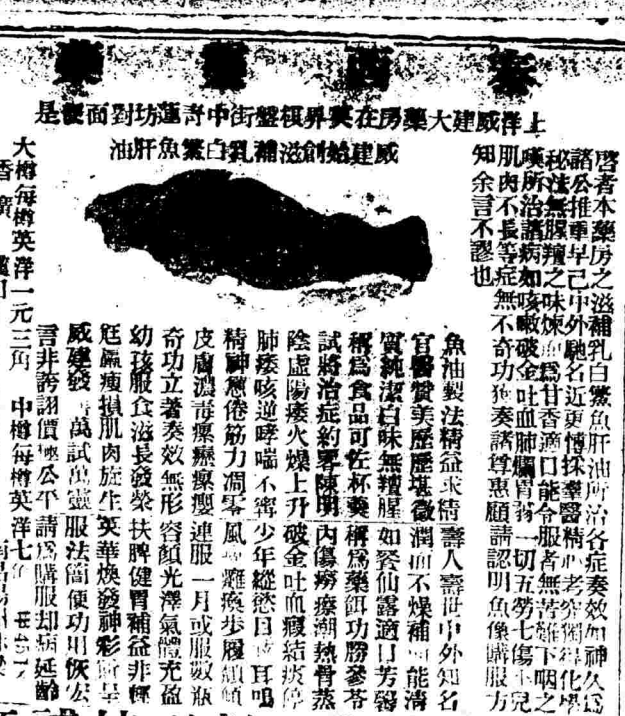 泰西靈藥
上洋威建大藥房在英界棋盤街中壽蓮坊對面便是
威建始創滋補乳白鱉魚肝油
啓者本藥房之滋補乳白鱉魚肝油所治各症奏效如神久爲
諸公推重早已中外馳名近更博採羣醫精心考究獨得化學
秘法無腥羶之味煉而爲甘香適口能令服者無苦難下咽之
嘆所治諸病如咳嗽破金吐血肺爛胃弱一切五勞七傷小兒
肌肉不長等症無不奇功獨奏諸尊惠顧請認明魚像購服方
知余言不謬也
魚油製法精益求精壽人壽世中外知名
官醫贊美歷歷堪徵潤而不燥補而能清
質純潔白味無羶腥如餐仙露適口芳馨
稱爲食品可佐杯羹稱爲藥餌功勝參苓
試將治症約畧陳明內傷癆瘵潮熱骨蒸
陰虛陽痿火燥上升破金吐血瘕結痰停
肺痿咳逆哮喘不寗少年縱慾目眩耳鳴
精神憊倦筋力凋零風癱瘓步履傾
皮膚濃毒瘰癧瘰癭連服一月或服數瓶
奇功立著奏效無形容顏光澤氣體充盈
幼孩服食滋長發榮扶脾健胃補益非輕
尪羸瘦損肌肉旋生英華煥發神彩
威建發萬試萬靈服法簡便功用恢宏
言非誇詡價極公平請爲購服却病延齡
大樽每樽英洋一元三角 中樽每樽英洋七角
香 廣 漢口